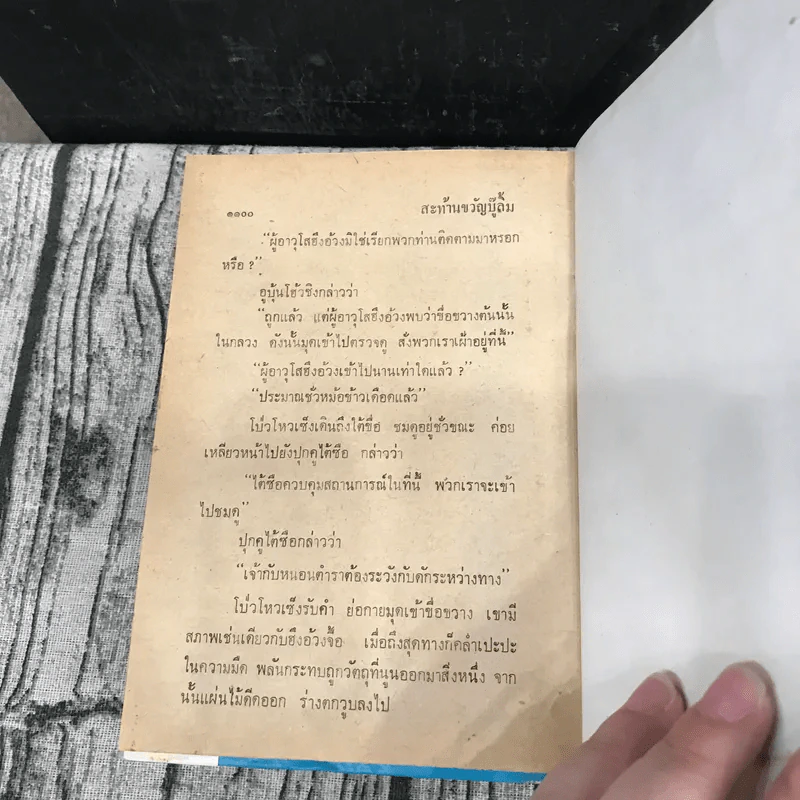 ๑๑๐๐ สะท้านขวัญบู๊ลิ้ม
“ผู้อาวุโสฮึงอ้วงมิใช่เรียกพวกท่านติดตามมาหรอก
หรือ ?”
อูบุ้นโฮ้วชิงกล่าวว่า
“ถูกแล้ว แต่ผู้อาวุโสฮึงอ้วงพบว่าขื่อขวางต้นนั้น
ในกลวง ดังนั้นมุดเข้าไปตรวจดู สั่งพวกเราเฝ้าอยู่ที่นี้”
“ผู้อาวุโสฮึงอ้วงเข้าไปนานเท่าใดแล้ว ?”
“ประมาณชั่วหม้อข้าวเดือดแล้ว”
โบ๊วโหวเซ็งเดินถึงใต้ขื่อ ชมดูอยู่ชั่วขณะ ค่อย
เหลียวหน้าไปยังปุกคูไต้ซือ กล่าวว่า
“ไต้ซือควบคุมสถานการณ์ในที่นี้ พวกเราจะเข้า
ไปชมดู”
ปุกคูไต้ซือกล่าวว่า
“เจ้ากับหนอนตำราต้องระวังกับดักระหว่างทาง”
โบ๊วโหวเซ็งรับคำ ย่อกายมุดเข้าขื่อขวาง เขามี
สภาพเช่นเดียวกับฮึงอ้วงจื้อ เมื่อถึงสุดทางก็คลำเปะปะ
ในความมืด พลันกระทบถูกวัตถุที่นูนออกมาสิ่งหนึ่ง จาก
นั้นแผ่นไม้ดีดออก ร่างตกวูบลงไป